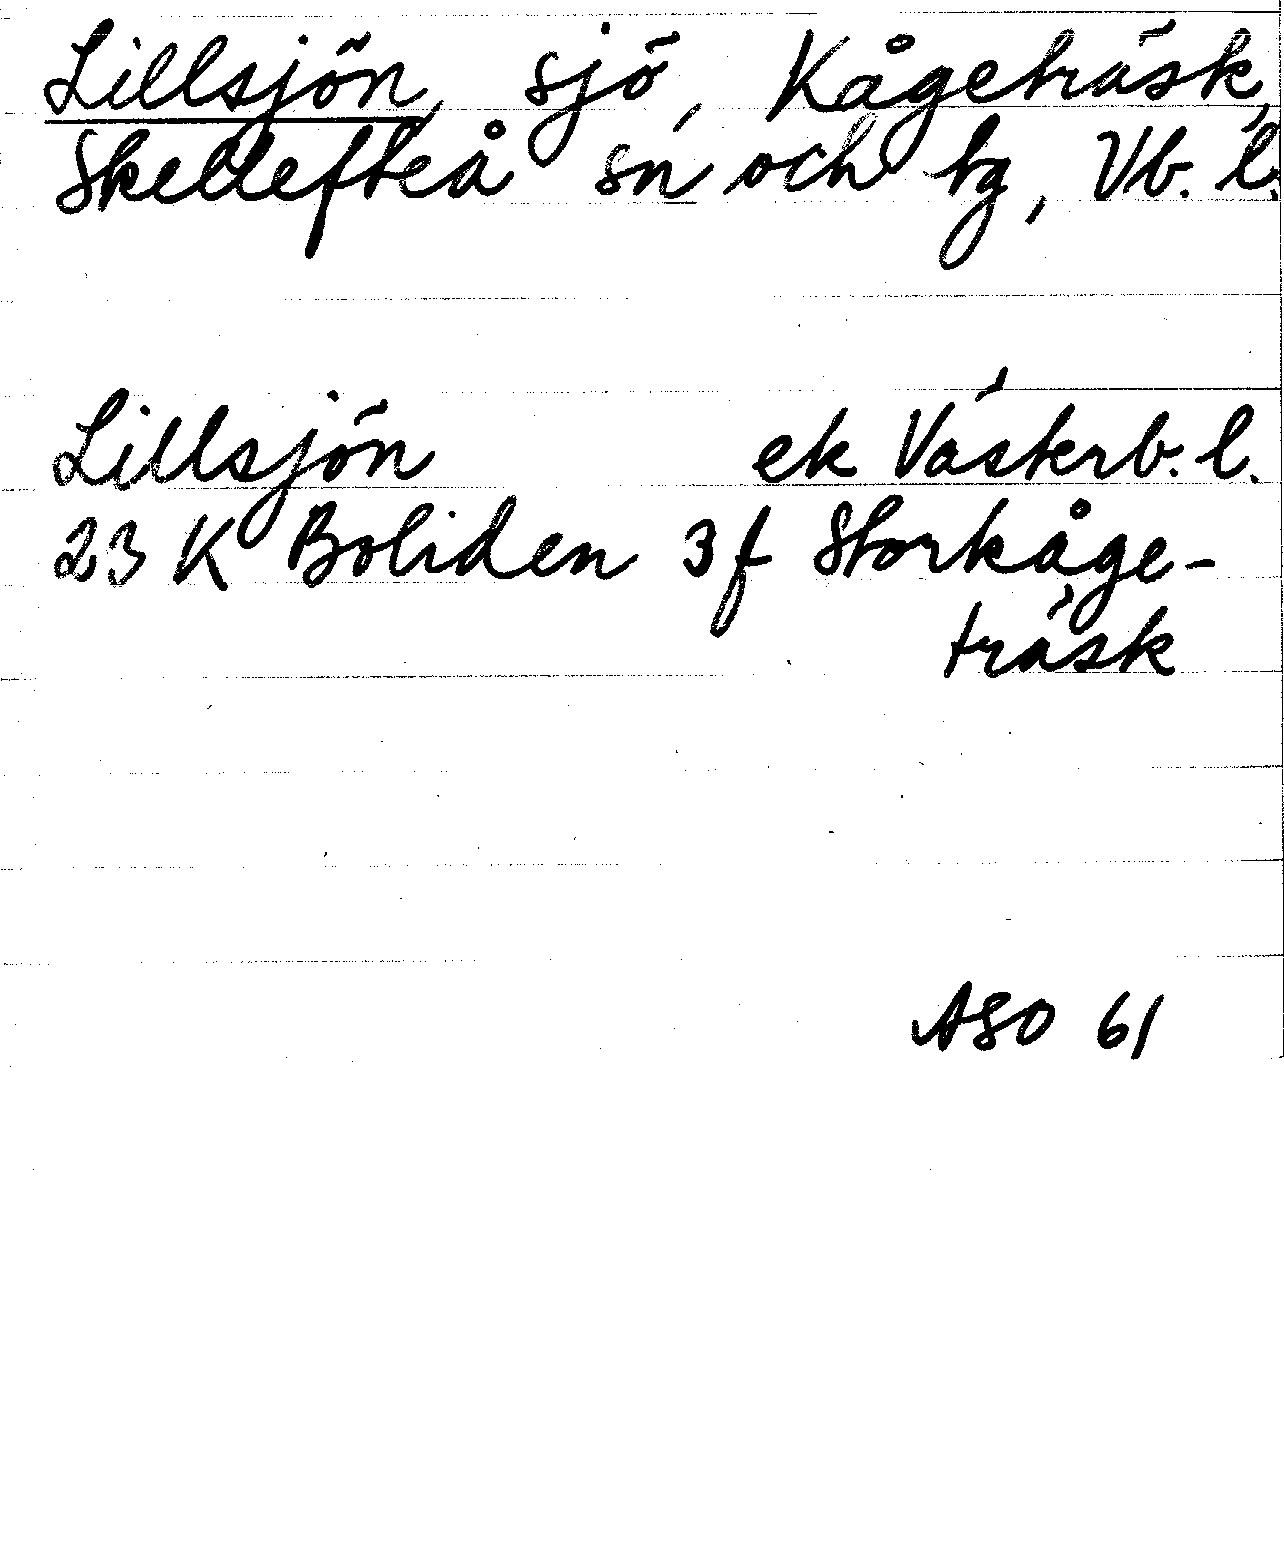 Lillsjön, sjö, Kågeträsk,
Skellefteå sn och tg, Vb. l.
Lillsjön ek Västerb. l.
23 K Boliden 3f Storkåge-
träsk
ASO 61